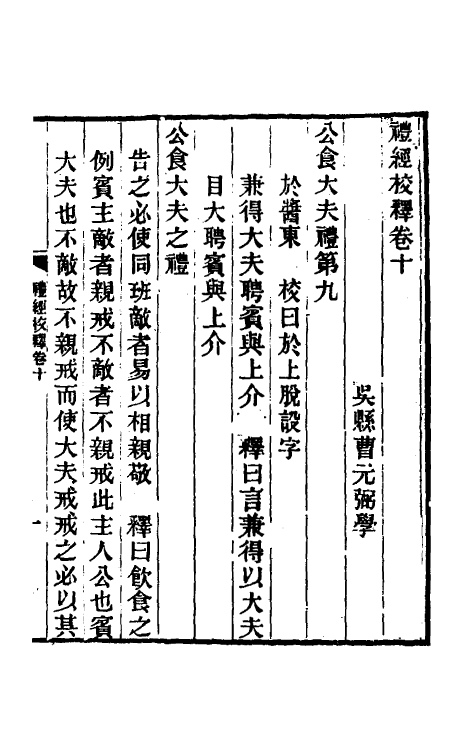 禮經校釋卷十
吳縣曹元弼學
公食大夫禮第九
於醬東　校曰於上脫設字
兼得大夫聘賓與上介　釋曰言兼得以大夫
目大聘賓與上介
公食大夫之禮
告之必使同班敵者易以相親敬　釋曰飲食之
例賓主敵者親戒不敵者不親戒此主人公也賓
大夫也不敵故不親戒而使大夫戒戒之必以其
禮經校釋卷十
一